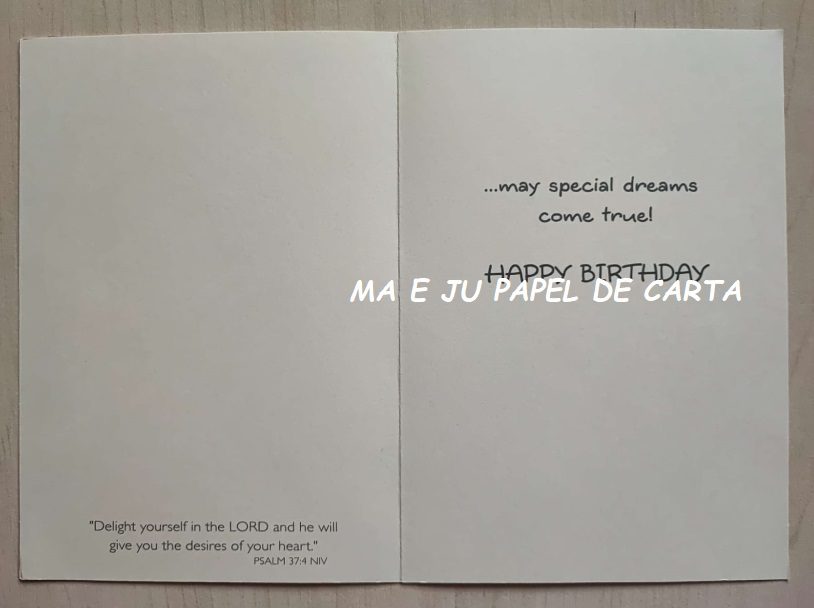 "Delight yourself in the LORD and he will
give you the desires of your heart."
PSALM 37:4 NIV
...may special dreams
come true!
HAPPY BIRTHDAY
MA E JU PAPEL DE CARTA